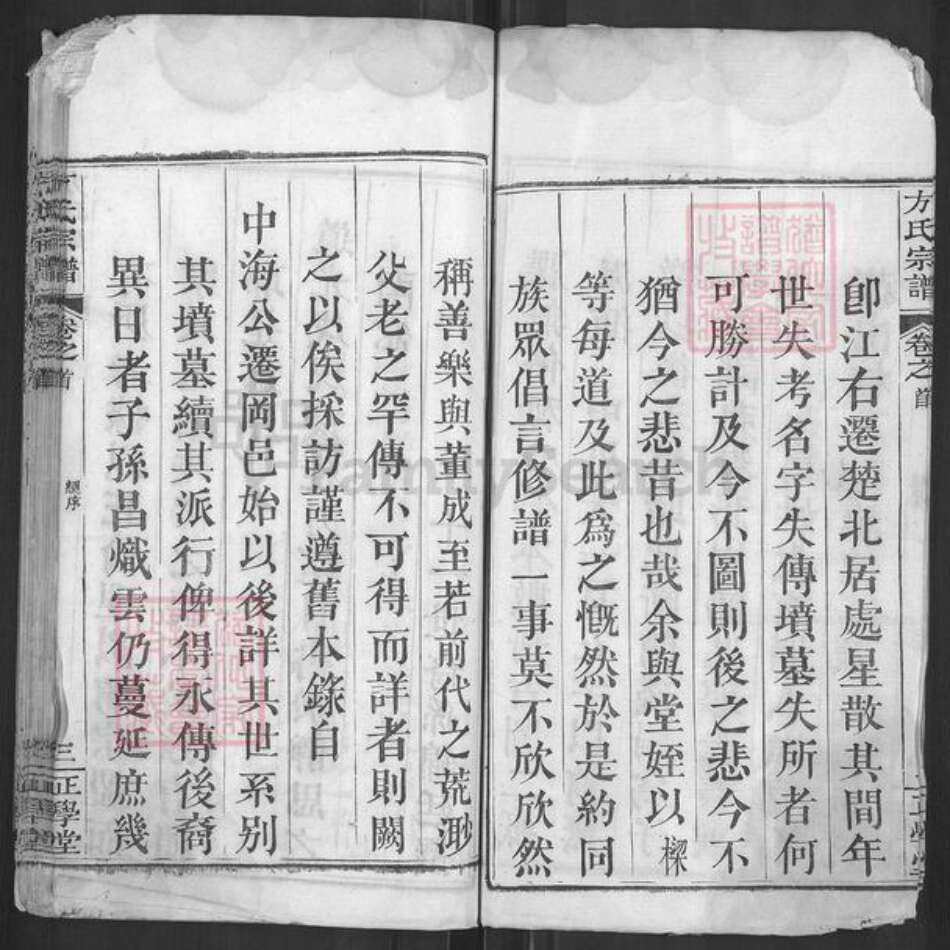 方氏宗譜
卷之首
即江右遷楚北居處星散其間年
世失考名字失傳墳墓失所者何
可勝計及今不圖則後之悲今不
猶今之悲昔也哉余與堂姪以樑
等每道及此為之慨然於是約同
族眾倡言修譜一事莫不欣欣然
稱善樂與董成至若前代之荒渺
父老之罕傳不可得而詳者則闕
之以俟採訪謹遵舊本錄自
中海公遷岡邑始以後詳其世系別
其墳墓續其派行俾得永傳後裔
異日者子孫昌熾雲仍蔓延庶幾
氏宗譜
卷之首
序
三
正學堂
FamilySearch